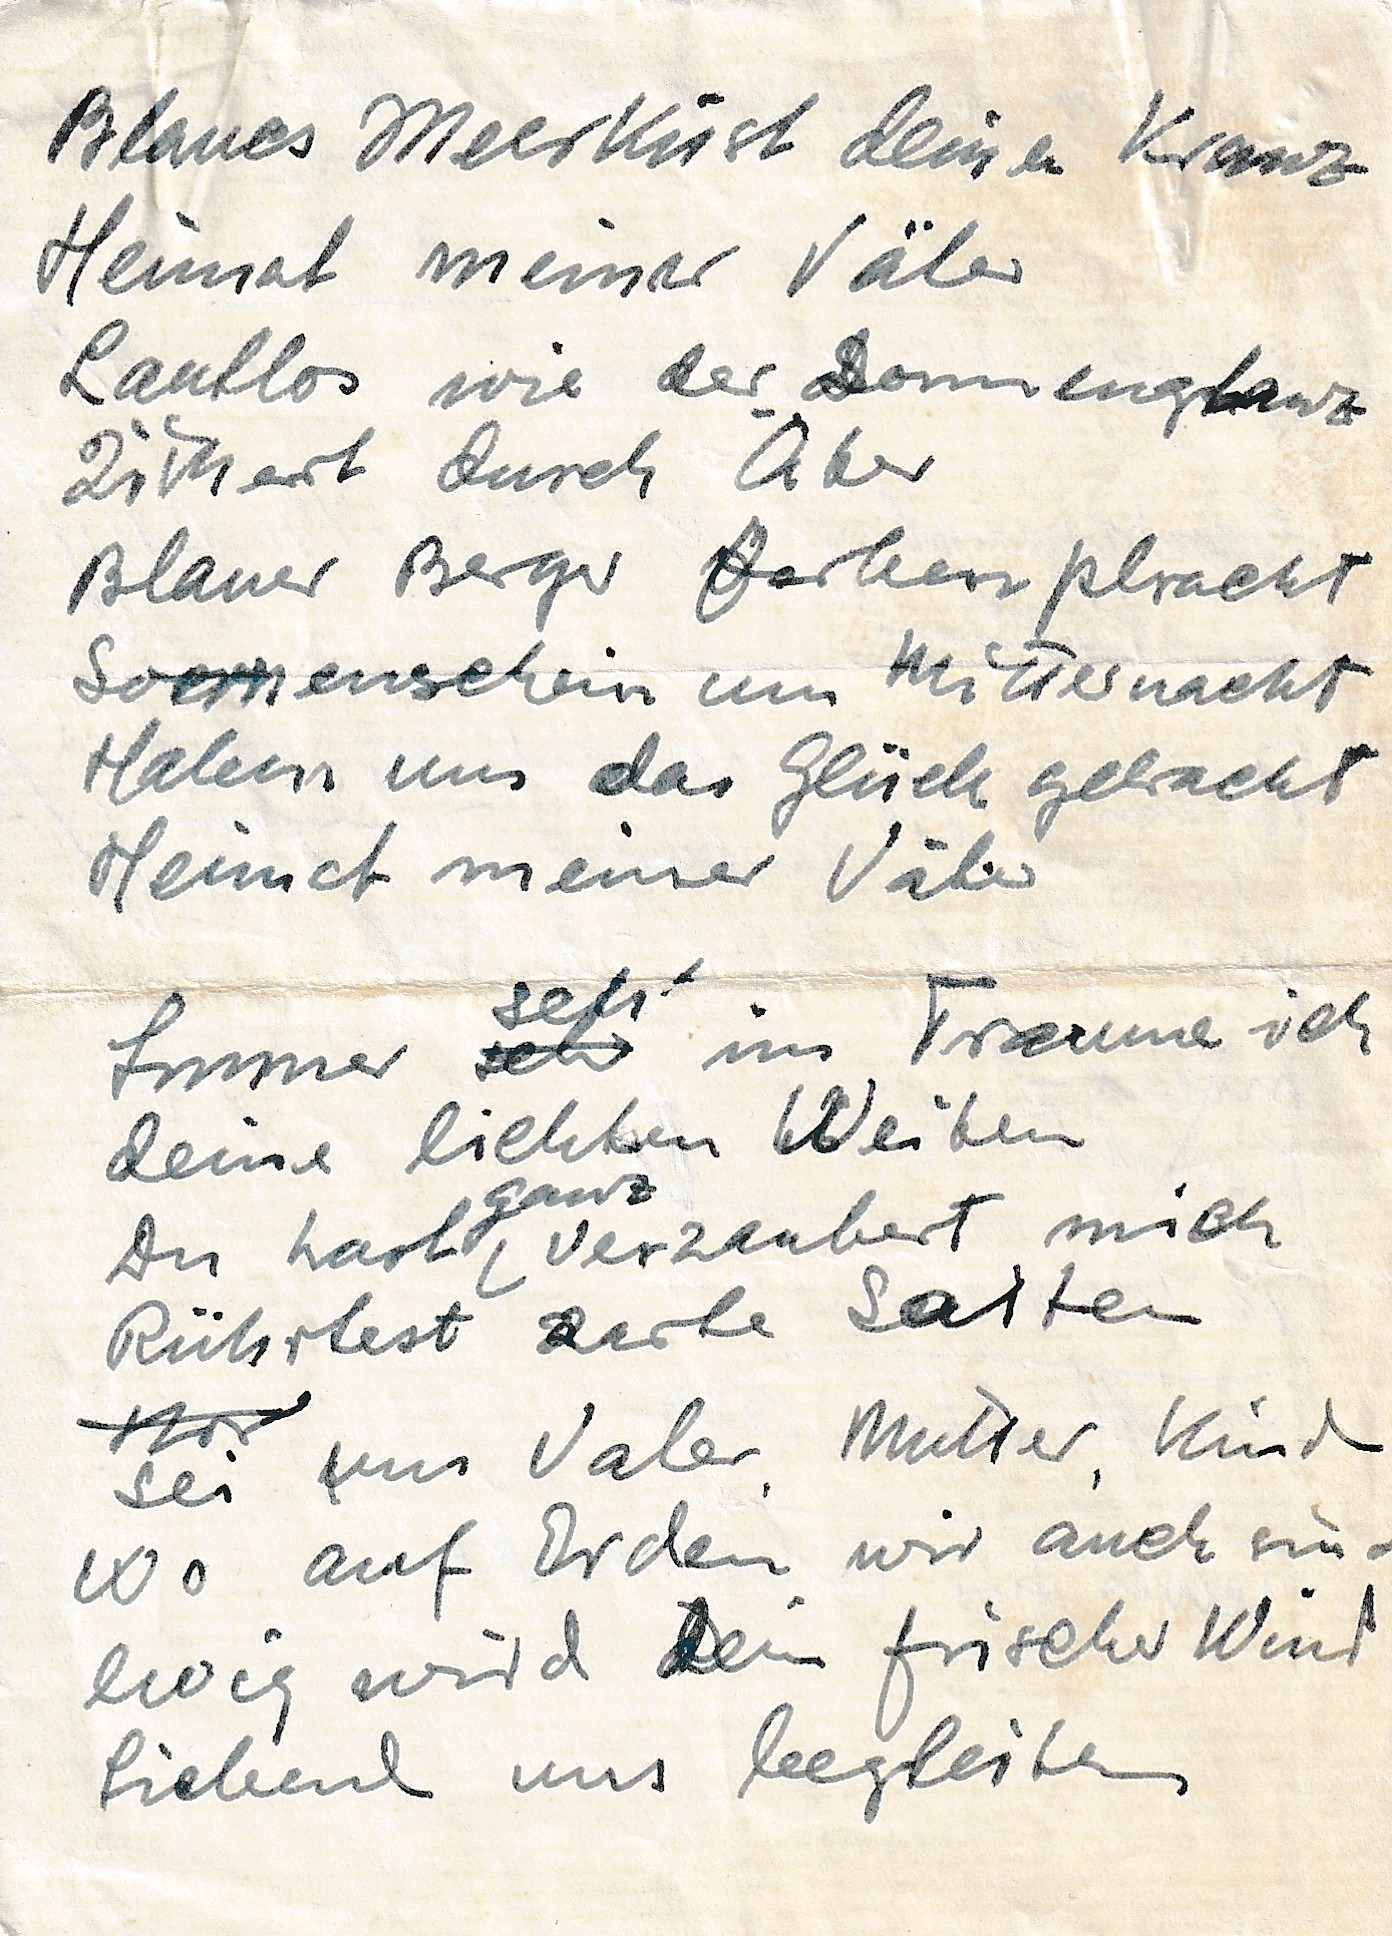 Blaues Meer küst deinen Kranz
Heimat meiner Väter
Lautlos wie der Sonnenglanz
Zittert durch Äter
Blauer Berge Farbenpracht
Sonnenschein um Mitternacht
Haben uns das Glück gebracht
Heimat meiner Väter
Immer seh' im Traume ich
deine lichten Weiten
Du hast ganz verzaubert mich
Rührtest zarte Saiten
sei uns Vater, Mutter, Kind
wo auf Erden wir auch sind
ewig wird Dein frischer Wind
Liebend uns begleiten